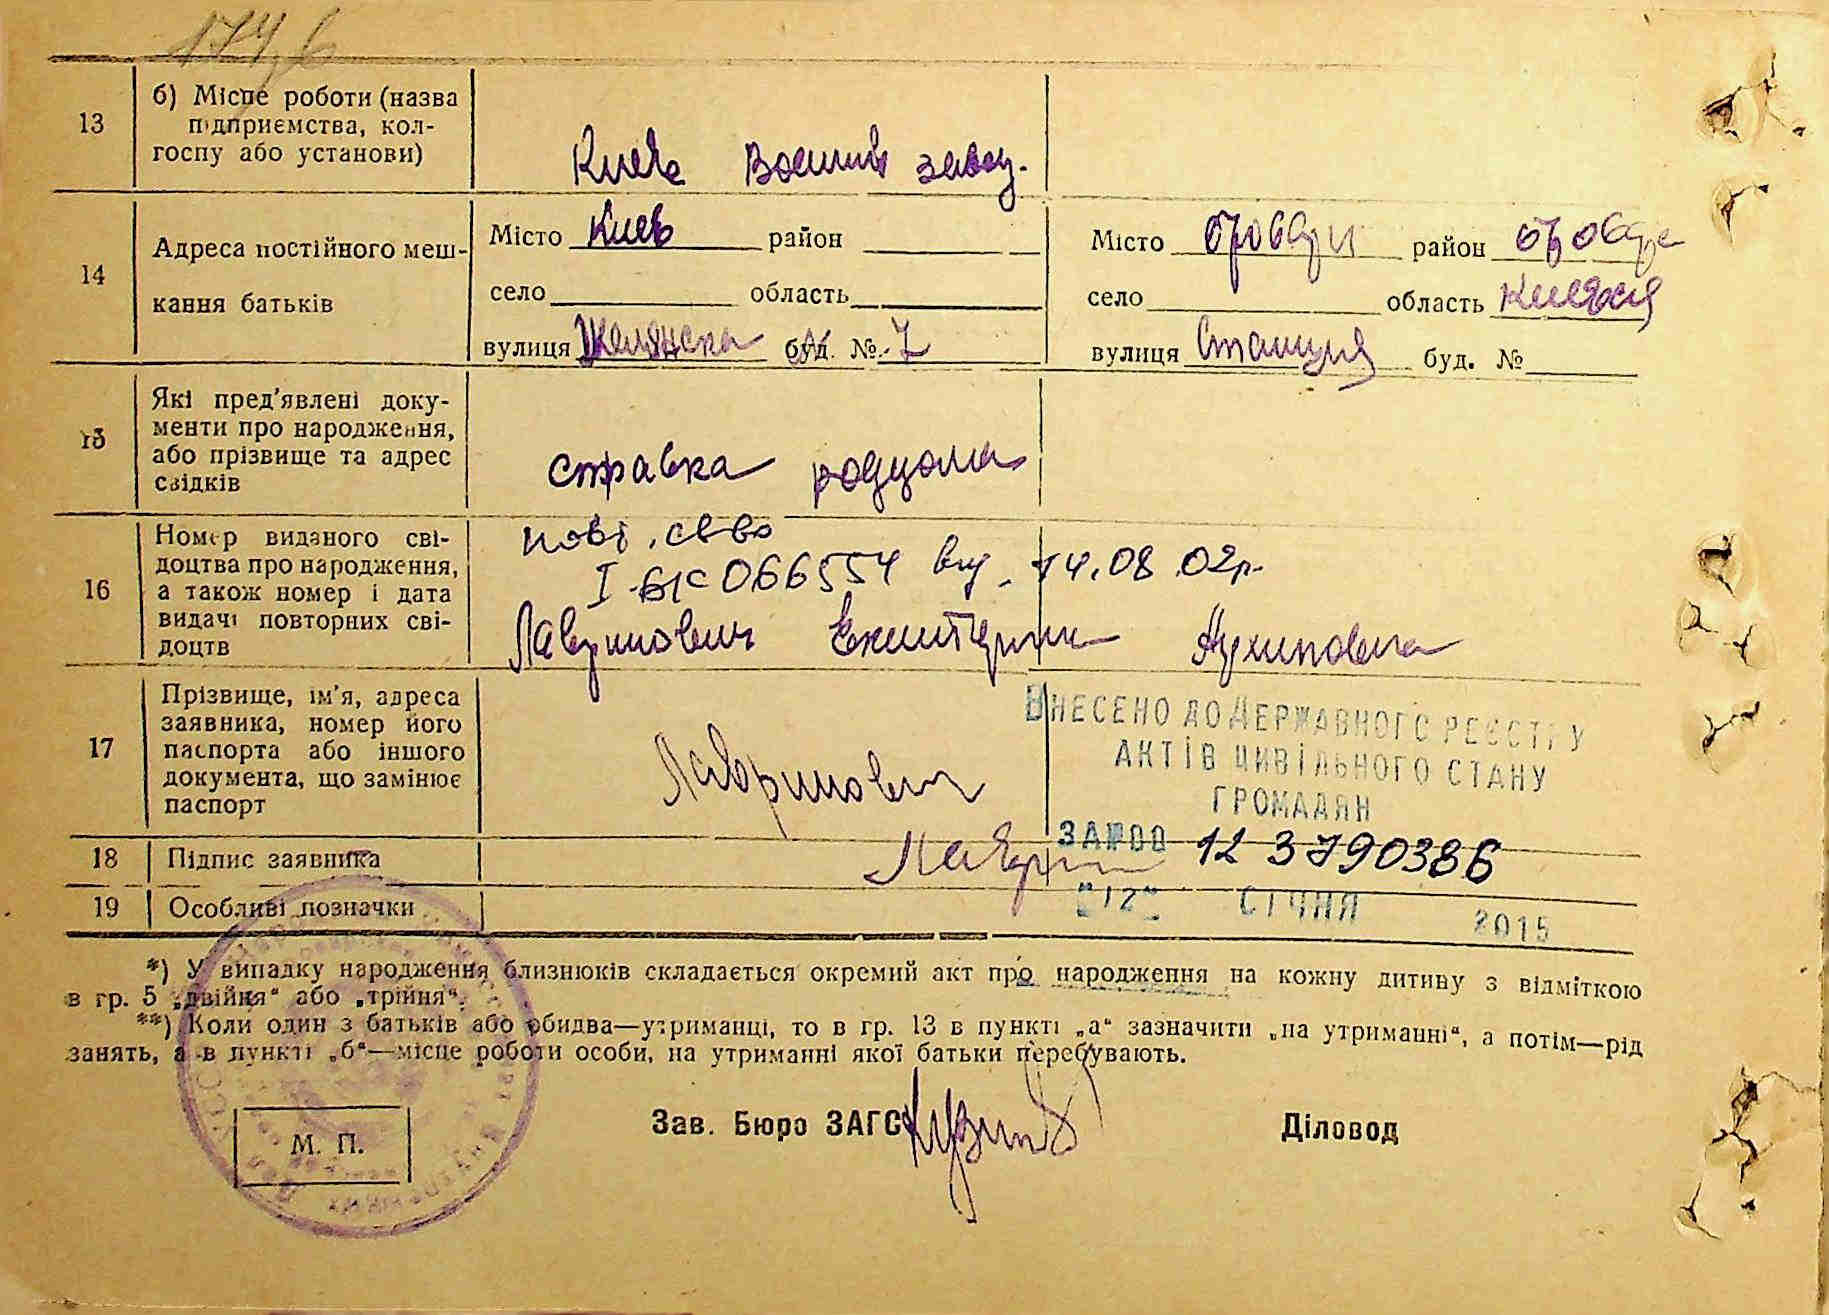 13
б) Місце роботи (назва
підприємства, кол-
госпу або установи)
Киев Военний завод.
14
Адреса постійного меш-
кання батьків
Місто Киев район
село область
вулиця Жилянска буд. № 7
Місто Бровари район Бровар
село область Киевская
вулиця Станция буд. №
15
Які пред'явлені доку-
менти про народження,
або прізвище та адрес
свідків
справка роддома
16
Номер виданого сві-
доцтва про народження,
а також номер і дата
видачі повторних сві-
доцтв
повт. св-во
I-БК 066554 від 14.08.02р.
Лавринович Екатерина Архиповна
17
Прізвище, ім'я, адреса
заявника, номер його
паспорта або іншого
документа, що замінює
паспорт
Лавринович
ВНЕСЕНО ДО ДЕРЖАВНОГО РЕЄСТРУ
АКТІВ ЦИВІЛЬНОГО СТАНУ
ГРОМАДЯН
ЗА №00 12 3790386
18
Підпис заявника
Лаврин
"12" СІЧНЯ 2015
19
Особливі позначки
*) У випадку народження близнюків складається окремий акт про народження на кожну дитину з відміткою
в гр. 5 „двійня“ або „трійня“.
**) Коли один з батьків або обидва—утриманці, то в гр. 13 в пункті „а“ зазначити „на утриманні“, а потім—рід
занять, а в пункті „б“—місце роботи особи, на утриманні якої батьки перебувають.
М. П.
Зав. Бюро ЗАГС
Діловод